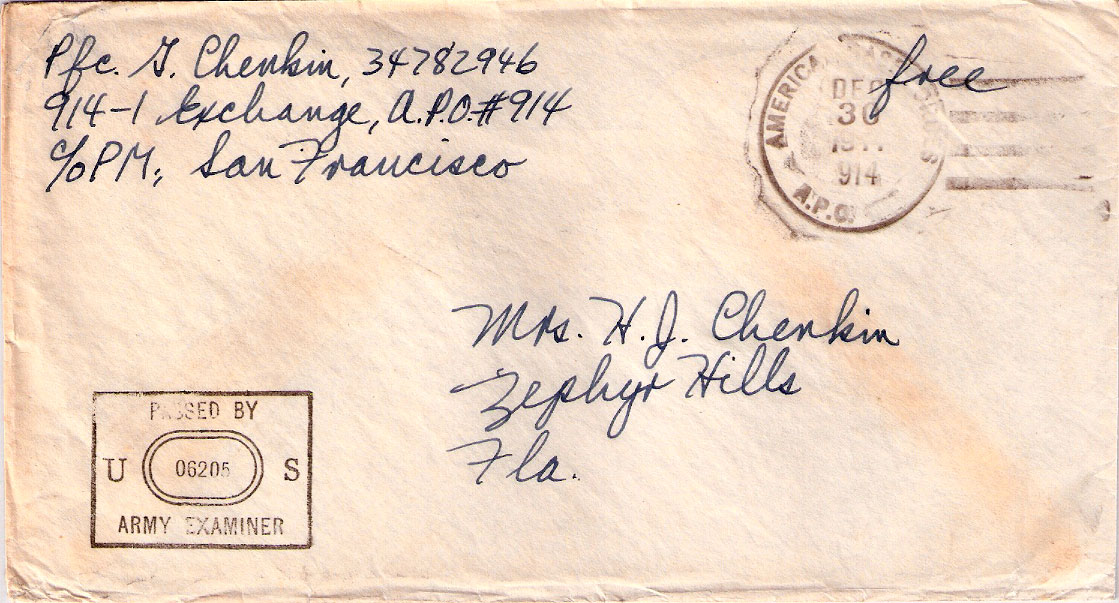 Pfc. G. Chenkin, 34782946
914-1 Exchange, A.P.O. #914
c/o PM, San Francisco
free
AMERICAN BASE FORCES
DEC
30
914
A.P.O.
Mrs. H. J. Chenkin
Zephyr Hills
Fla.
PASSED BY
U 06205 S
ARMY EXAMINER